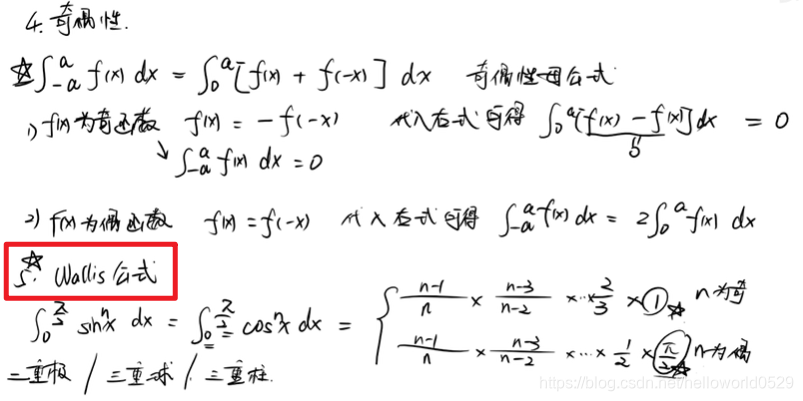 4. 奇偶性.
☆ ∫_{-a}^{a} f(x) dx = ∫_0^a [f(x) + f(-x)] dx 奇偶性母公式
1) f(x)为奇函数 f(x) = -f(-x) 代入右式可得 ∫_0^a [f(x) - f(x)] dx = 0
↘ ∫_{-a}^{a} f(x) dx = 0
2) f(x)为偶函数 f(x) = f(-x) 代入右式可得 ∫_{-a}^{a} f(x) dx = 2∫_0^a f(x) dx
☆ 5. Wallis 公式
∫_0^{π/2} sin^n x dx = ∫_0^{π/2} cos^n x dx = { (n-1)/n × (n-3)/(n-2) × ⋯ × 2/3 × 1 ☆ n为奇
(n-1)/n × (n-3)/(n-2) × ⋯ × 1/2 × π/2 ☆ n为偶
二重极 / 三重球 / 三重柱.
https://blog.csdn.net/helloworld0529